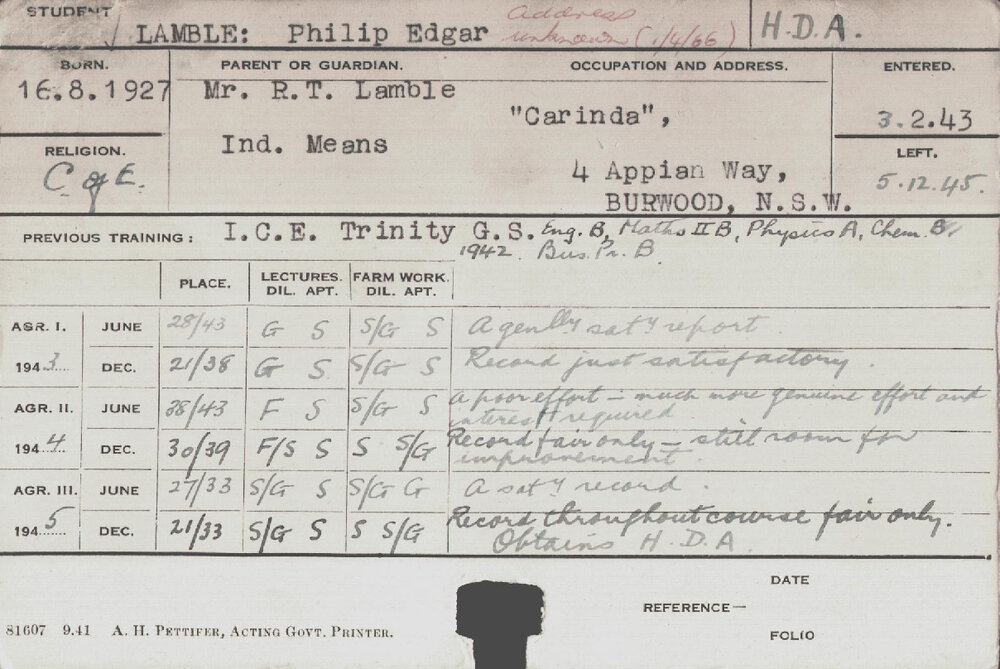 STUDENT
LAMBLE: Philip Edgar
address
unknown (1/4/66)
H.D.A.
BORN.
16.8.1927
PARENT OR GUARDIAN.
OCCUPATION AND ADDRESS.
Mr. R.T. Lamble
"Carinda",
Ind. Means
4 Appian Way,
BURWOOD, N.S.W.
ENTERED.
3.2.43
RELIGION.
C of E.
LEFT.
5.12.45.
PREVIOUS TRAINING: I.C.E. Trinity G.S. Eng. B, Maths II B, Physics A, Chem. B,
1942. Bus. Pr. B.
PLACE. LECTURES. DIL. APT. FARM WORK. DIL. APT.
AGR. I. JUNE 28/43 G S S/G S A genlly saty report
1943 DEC. 21/38 G S S/G S Record just satisfactory.
AGR. II. JUNE 38/43 F S S/G S A poor effort – much more genuine effort and
interest required.
1944 DEC. 30/39 F/S S S S/G Record fair only – still room for
improvement.
AGR. III. JUNE 27/33 S/G S S/G G A saty record.
1945 DEC. 21/33 S/G S S S/G Record throughout course fair only.
Obtains H.D.A.
DATE
REFERENCE—
FOLIO
81607 9.41 A. H. PETTIFER, ACTING GOVT. PRINTER.